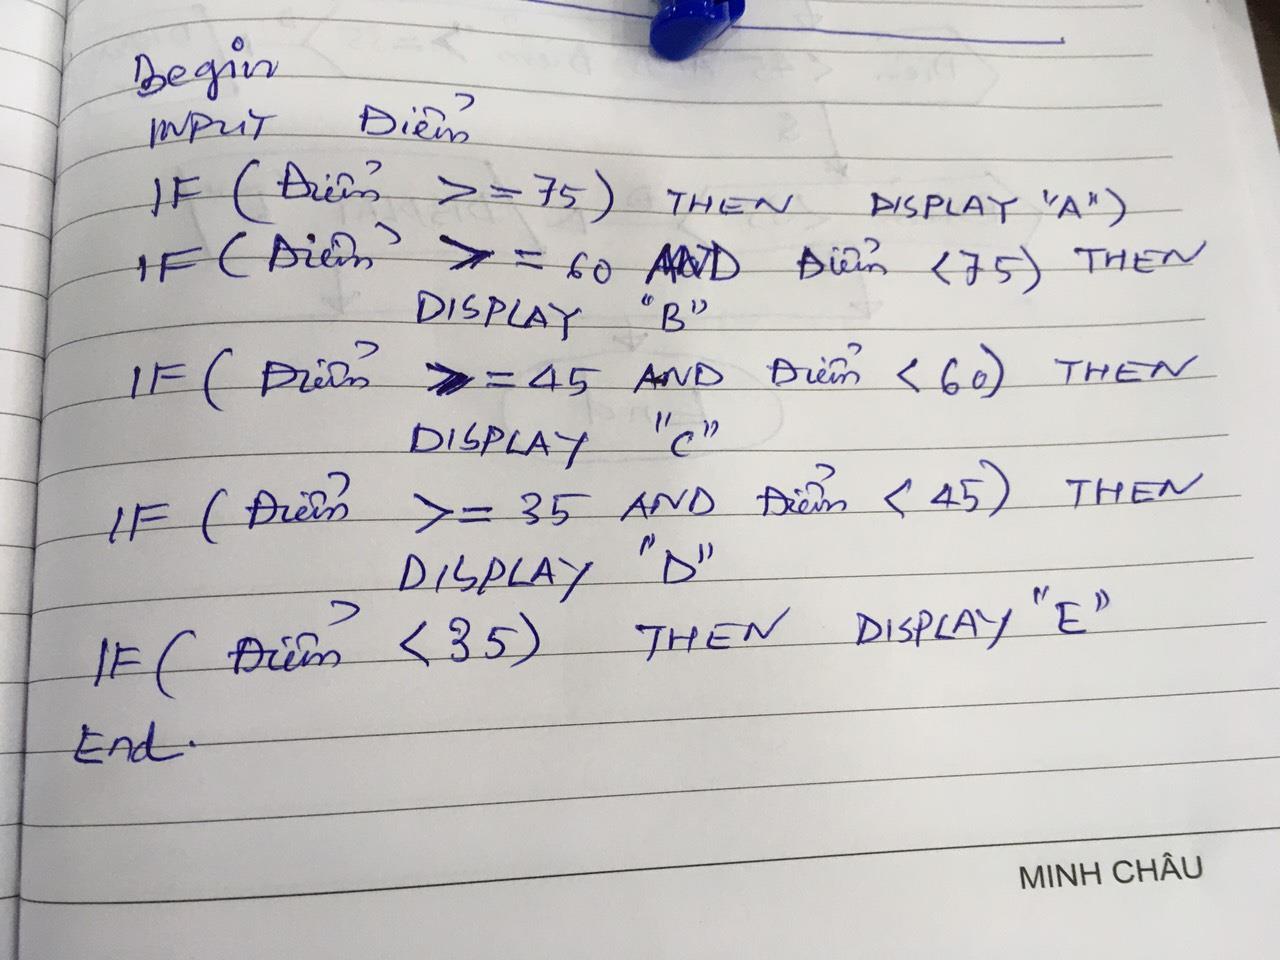 Begin
INPUT Điểm
IF (Điểm >=75) THEN DISPLAY "A")
IF (Điểm >= 60 AND Điểm <75) THEN
DISPLAY "B"
IF ( Điểm >= 45 AND Điểm < 60) THEN
DISPLAY "C"
IF ( Điểm >= 35 AND Điểm < 45) THEN
DISPLAY "D"
IF ( Điểm <35) THEN DISPLAY "E"
End.
MINH CHÂU